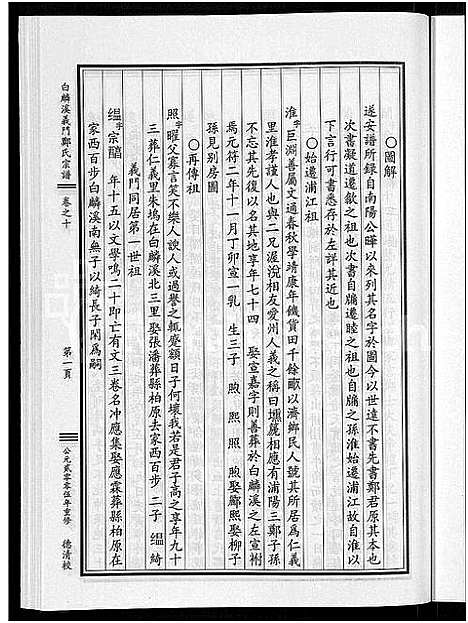 ○圖解
遂安譜所錄自南陽公曄以來列其名字於圖今以世遠不書先書鄭君原其本也
次書凝道遷歙之祖也次書自牖遷睦之祖也自牖之孫淮始遷浦江故自淮以
下言行可書悉存於左詳其近也
○始遷浦江祖
淮字巨淵善屬文通春秋學靖康年饑貨田千餘畝以濟鄉民人號其所居為仁義
里淮孝謹人也與二兄渥涗相友愛州人義之稱曰壎篪相應有浦陽三鄭子孫
不忘其先復以名其地享年七十四 娶宣嘉字則善葬於白麟溪之左宣祔
焉元符二年十一月丁卯宣一乳 生三子 煦 熙 照 煦娶鄺熙娶柳子
孫見別房圖
○再傳祖
照字曜父寡言笑不樂人諛人或過譽之輒蹙額曰子何壞我若是君子高之享年九十
三葬仁義里朱塢在白麟溪北三里娶張潘葬縣柏原去家西百步 二子 緼 綺
義門同居第一世祖
緼字宗醞 年十五以文學鳴二十即亡有文三卷名冲應集娶應霖葬縣柏原在
家西百步白麟溪南無子以綺長子閑為嗣
白麟溪義門鄭氏宗譜 卷之十 第一頁 公元貳零零伍年重修 德清校